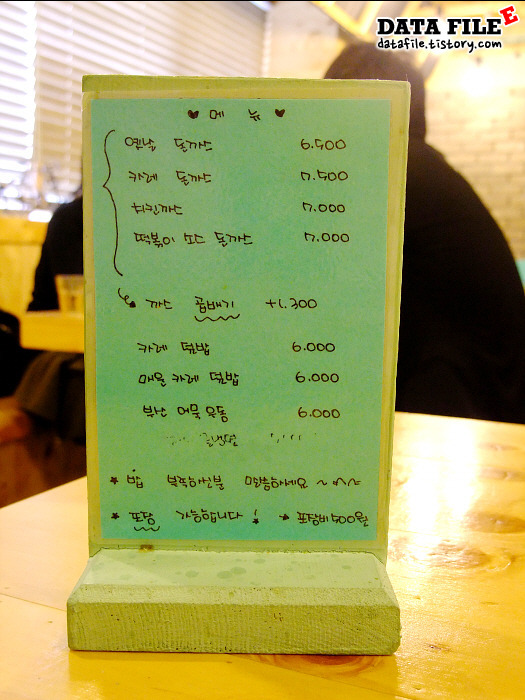 DATA FILE E
datafile.tistory.com
♥ 메 뉴 ♥
옛날 돈까스 6.500
카레 돈까스 7.500
치킨까스 7.000
떡볶이 소스 돈까스 7.000
까스 곱배기 +1.300
카레 덮밥 6.000
매운 카레 덮밥 6.000
부산 어묵 우동 6.000
★ 밥 부족하신분 말씀하세요 ~^^
★ 포장 가능합니다 ! ★ 포장비 500원